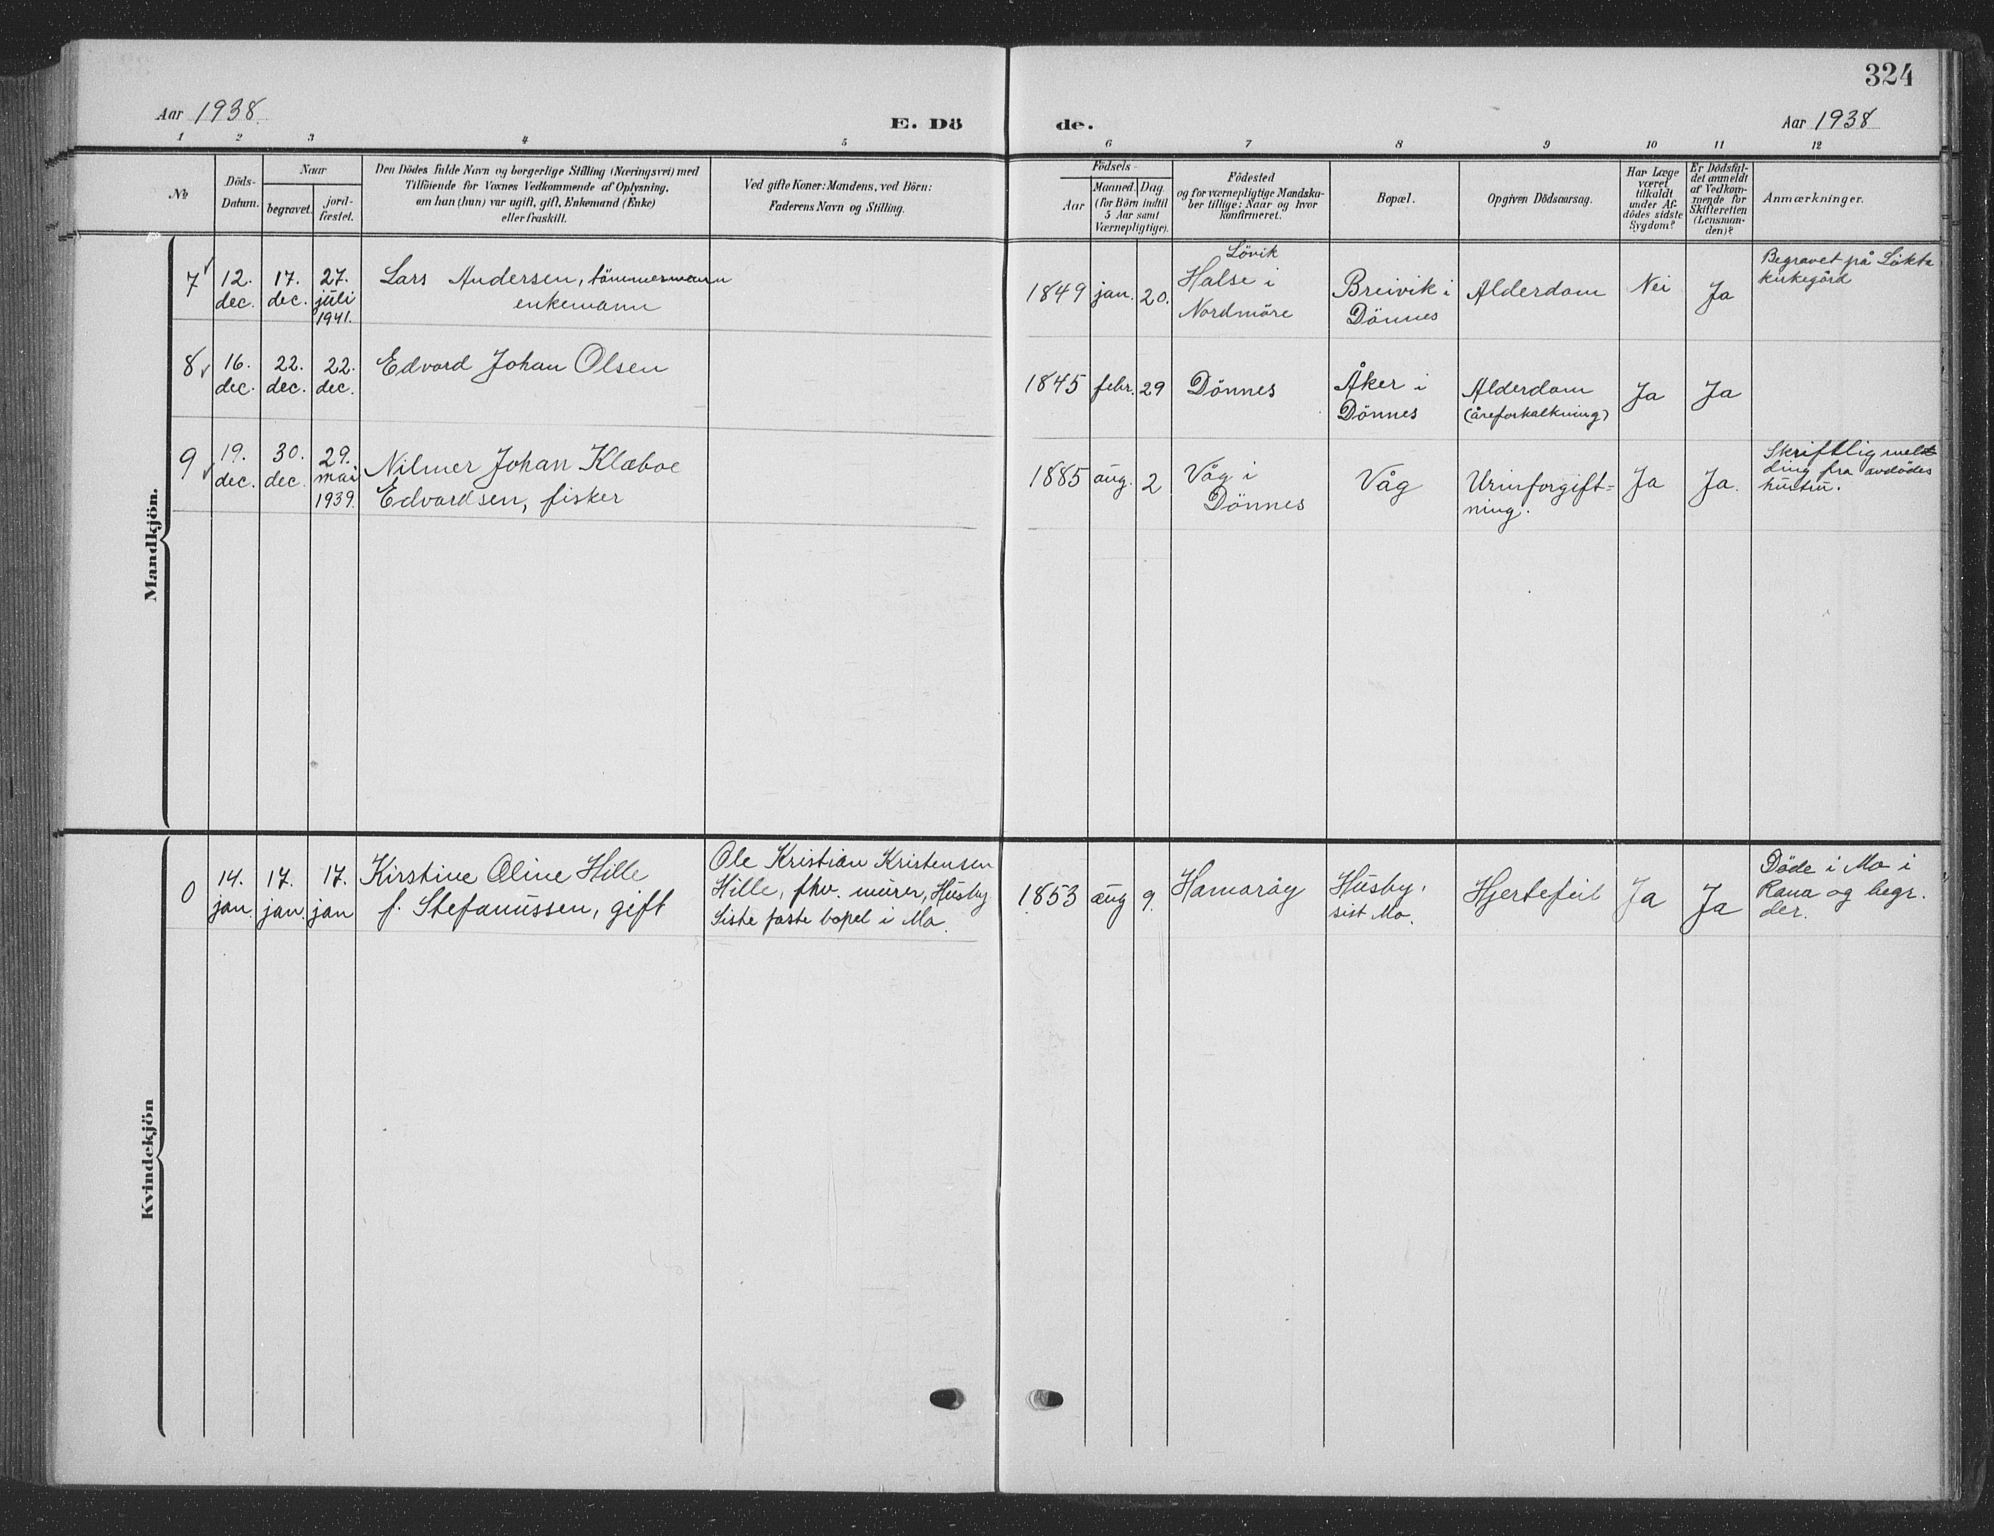 324
Aar 1938. E. Dö de. Aar 1938
1 2 3 4 5 6 7 8 9 10 11 12
No
Döds-
Datum.
Naar
begravet.
jord-
fæstet.
Den Dödes fulde Navn og borgerlige Stilling (Næringsvei) med
Tilföiende for Voxnes Vedkommende af Oplysning,
om han (hun) var ugift, gift, Enkemand (Enke)
eller fraskilt.
Ved gifte Koner: Mandens, ved Börn:
Faderens Navn og Stilling.
Födsels-
Aar
Maaned. Dag
(for Börn indtil
5 Aar samt
Værnepligtige).
Födested
og for værnepligtige Mandska-
ber tillige: Naar og hvor
konfirmeret.
Bopæl.
Opgiven Dödsaarsag.
Har Læge
været
tilkaldt
under Af-
dödes sidste
Sygdom?
Er Dödsfal-
det anmeldt
af Vedkom-
mende for
Skifteretten
(Lensman-
den)?
Anmærkninger.
Mandkjön.
7
12.
dec.
17.
dec.
27.
juli
1941.
Lars Andersen, tömmermann
enkemann
1849 jan. 20.
Lövik
Halse i
Nordmöre
Breivik i
Dönnes
Alderdom
Nei
Ja
Begravet på Lökta
kirkegård
8
16.
dec.
22.
dec.
22.
dec.
Edvard Johan Olsen
1845 febr. 29
Dönnes
Åker i
Dönnes
Alderdom
(åreforkalkning)
Ja
Ja
9
19.
dec.
30.
dec.
29.
mai
1939.
Nilmer Johan Klæboe
Edvardsen, fisker
1885 aug. 2
Våg i
Dönnes
Våg
Urinforgift-
ning.
Ja
Ja.
Skriftlig mel-
ding fra avdödes
hustru.
Kvindekjön
0
14.
jan.
17.
jan.
17.
jan
Kirstine Oline Hille
f. Stefanussen, gift
Ole Kristian Kristensen
Hille, fhv. murer, Husby
Siste faste bopel i Mo.
1853 aug 9.
Hamaröy
Husby,
sist Mo.
Hjertefeil
Ja
Ja
Döde i Mo i
Rana og begr.
der.